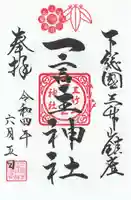 下総國三竹山鎮座
一言主神社
奉拝
令和四年
六月五日